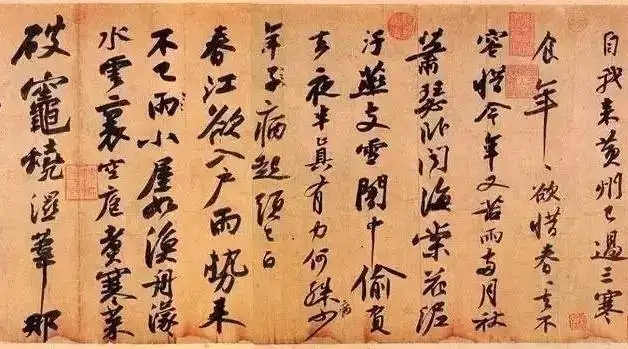 自我來黃州已過三寒
食年〻欲惜春〻去不
容惜今年又苦雨兩月秋
蕭瑟臥聞海棠花泥
汙燕支雪闇中偷負
去夜半真有力何殊病少
年子病起頭已白
春江欲入戶雨勢來
不已雨小屋如漁舟濛〻
水雲裏空庖煮寒菜
破竈燒濕葦那